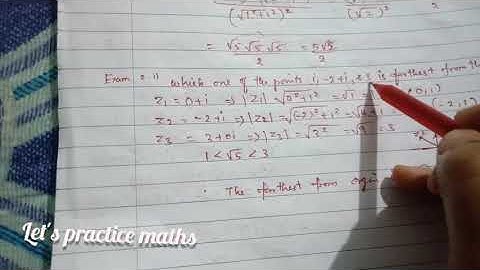 (√1²+1²)² (√2)²
= √5 √5 √5 / 2 = 5√5 / 2
Exam 2.11 which one of the points i, -2+i, 3 is farthest from the
Z₁ = 0+i ⇒ |Z₁| = √0²+1² = √1 = (0,1)
Z₂ = -2+i ⇒ |Z₂| = √(-2)²+1² = √4+1 (-2,1)
Z₃ = 3+0i ⇒ |Z₃| = √3² = √9 = 3
1 < √5 < 3
∴ The farthest from origin
Let's practice maths